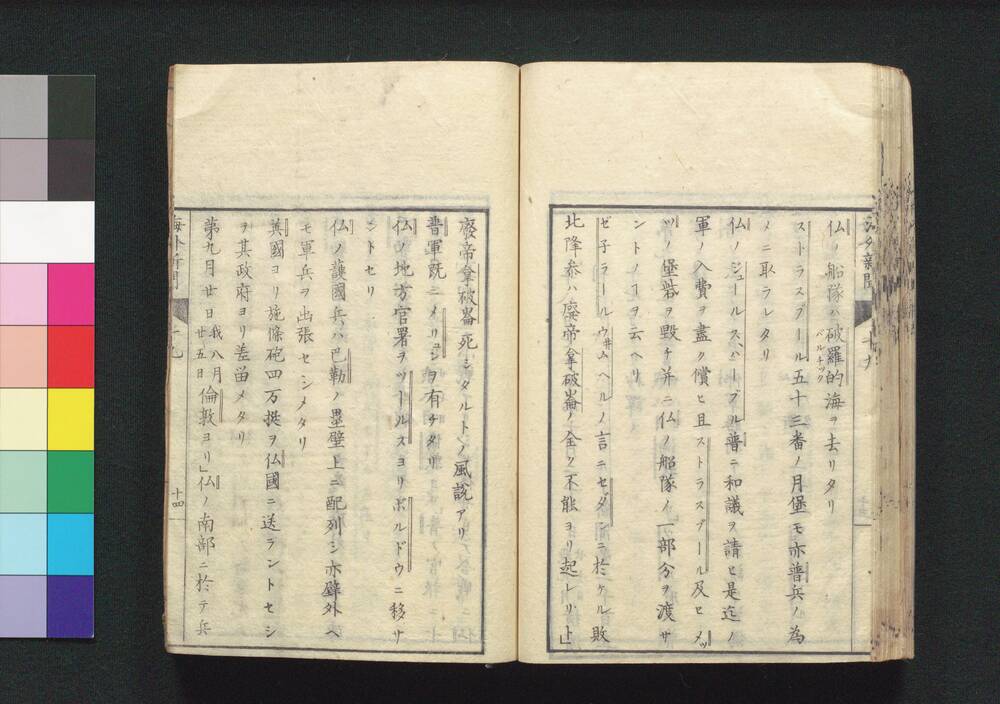 仏ノ船隊ハ破羅的海ヲ去リタリ
バルチック
ストラスブール五十三番ノ月堡モ亦普兵ノ為
メニ取ラレタリ
仏ノジュールスハーブル普ニ和議ヲ請ヒ是迄ノ
軍ノ入費ヲ盡ク償ヒ且ストラスブール及ヒメッ
ツノ堡砦ヲ毀チ并ニ仏ノ船隊ノ一部分ヲ渡サ
ントノヿヲ云ヘリ
ゼ子ラールウ井ムヘルノ言ニセダンニ於ケル敗
北降参ハ廃帝拿破崙ノ全ク不能ヨリ起レリト
廃帝拿破崙死シタルトノ風説アリ
普軍既ニメリヨンヲ有チタリ
仏ノ地方官署ヲツールスヨリボルドウニ移サ
ントセリ
仏ノ護國兵ハ巴勒ノ塁壁上ニ配列シ亦壁外ヘ
モ軍兵ヲ出張セシメタリ
英國ヨリ施條砲四万挺ヲ仏國ニ送ラントセシ
ヲ其政府ヨリ差留メタリ
第九月廿日我八月廿五日倫敦ヨリ」仏ノ南部ニ於テ兵
海外新聞
十四